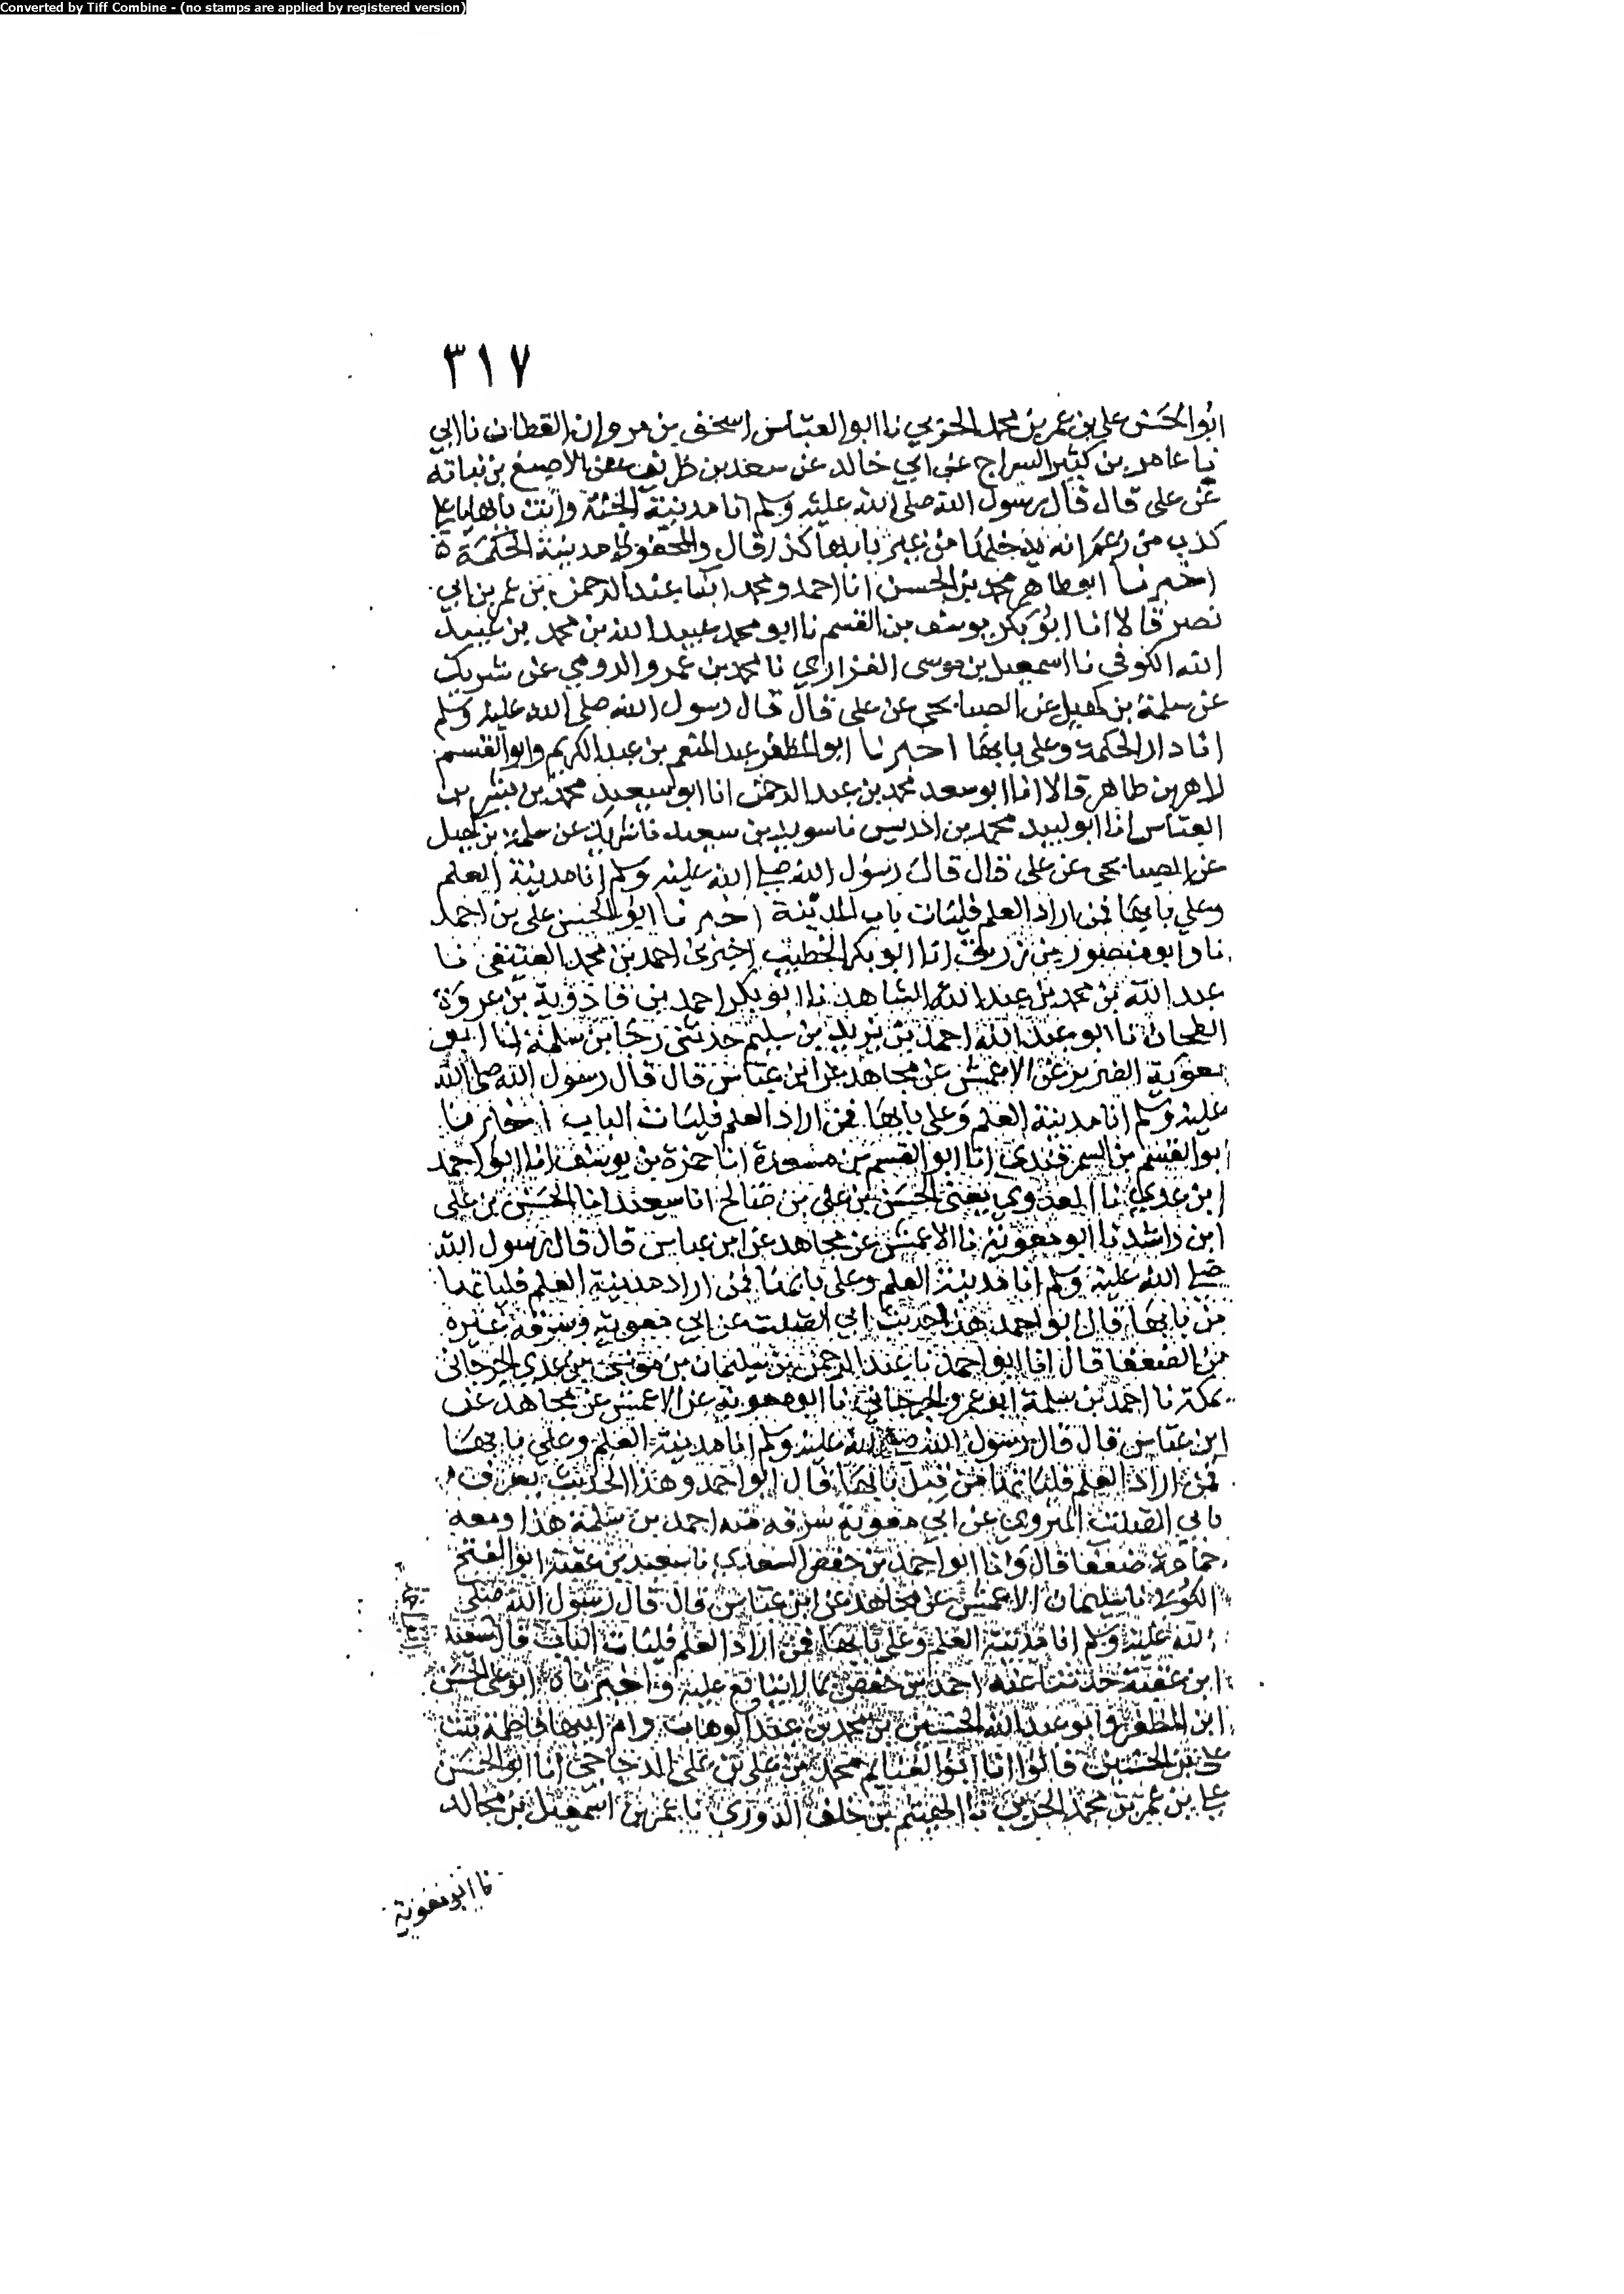 Converted by Tiff Combine - (no stamps are applied by registered version)
٣١٧
ابو الحسن علي بن عمر بن محمد الحربي نا ابو العباس اسحق بن مروان القطان نا ابي
نا عامر بن كثير السراج عن ابي خالد عن سعد بن طريف عن الاصبغ بن نباته
عن على قال قال رسول الله صلى الله عليه وسلم انا مدينة الجنة وانت بابها يا علي
كذب من زعم انه يدخلها من غير بابها كذا قال والمحفوظ مدينة الحكمة ه
اخبرنا ابو طاهر محمد بن الحسن انا احمد ومحمد ابنا عبد الرحمن بن عمر بن ابي
نصر قالا انا ابو بكر يوسف بن القسم نا ابو محمد عبيد الله بن محمد بن عبيد
الله الكوفي نا اسمعيل بن موسى الفزاري نا محمد بن عمرو الرومي عن شريك
عن سلمة بن كهيل عن الصنابحى عن على قال قال رسول الله صلى الله عليه وسلم
انا دار الحكمة وعلى بابها اخبرنا ابو المظفر عبد المنعم بن عبد الكريم وابو القسم
زاهر بن طاهر قالا انا ابو سعد محمد بن عبد الرحمن انا ابو سعيد محمد بن بشر بن
العباس انا ابو لبيد محمد بن ادريس نا سويد بن سعيد نا شريك عن سلمة بن كهيل
عن الصنابحى عن على قال قال رسول الله صلى الله عليه وسلم انا مدينة العلم
وعلي بابها فمن اراد العلم فليات باب المدينة اخبرنا ابو الحسن علي بن احمد
نا وابو منصور بن زريق انا ابو بكر الخطيب اخبرنى احمد بن محمد العتيقى نا
عبد الله بن محمد بن عبد الله الشاهد نا ابو بكر احمد بن فاذوية بن عروة
الطحان نا ابو عبد الله احمد بن يزيد بن سليم حدثنى رجا بن سلمة نا ابو
معوية الضرير عن الاعمش عن مجاهد عن ابن عباس قال قال رسول الله صلى الله
عليه وسلم انا مدينة العلم وعلى بابها فمن اراد العلم فليات الباب اخبرنا
ابو القسم بن السمرقندى انا ابو القسم بن مسعدة انا حمزة بن يوسف انا ابو احمد
ابن عدي نا العدوي يعنى الحسن بن على بن صالح انا سعيد انا الحسن بن على
ابن راشد نا ابو معوية نا الاعمش عن مجاهد عن ابن عباس قال قال رسول الله
صلى الله عليه وسلم انا مدينة العلم وعلى بابها فمن اراد مدينة العلم فلياتها
من بابها قال ابو احمد هذا حديث ابي الصلت عن ابي معوية وسرقه غيره
من الضعفا قال انا ابو احمد نا عبد الرحمن بن سليمان بن موسى بن عدي الجرجانى
بمكة نا احمد بن سلمة ابو عمرو الجرجاني نا ابو معوية عن الاعمش عن مجاهد عن
ابن عباس قال قال رسول الله صلى الله عليه وسلم انا مدينة العلم وعلي بابها
فمن اراد العلم فلياتها من قبل بابها قال ابو احمد وهذا الحديث يعرف
بابي الصلت الهروي عن ابي معوية سرقه منه احمد بن سلمة هذا ومعه
جماعة ضعفا قال وانا ابو احمد بن حفص السعدي نا سعيد بن عقبة ابو الفتح
الكوفي نا سليمان الاعمش عن مجاهد عن ابن عباس قال قال رسول الله صلى
الله عليه وسلم انا مدينة العلم وعلى بابها فمن اراد العلم فليات الباب قال سعيد
ابن عقبة حدثنا عنه احمد بن حفص بما لا يتابع عليه واخبرناه ابو على الحسن
ابن المظفر وابو عبد الله الحسين بن محمد بن عبد الوهاب وام ابيها فاطمة بنت
على بن الحسين قالوا انا ابو الغنايم محمد بن على بن على الدجاجى انا ابو الحسن
علي بن عمر بن محمد الحربي نا الهيثم بن خلف الدوري نا عمر بن اسمعيل بن مجالد
نا ابو معوية